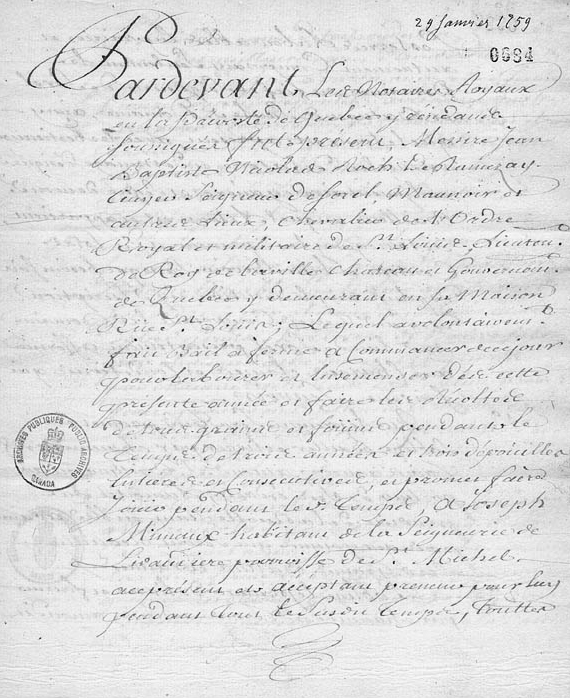 29 Janvier 1759
0684
Pardevant Les Notaires Royaux
en la prevosté de Quebec y résidants
soussignés fut présent Messire Jean
Baptiste Nicolas Roch de Ramezay
Ecuyer Seigneur de Sorel, Monnoir et
autres Lieux, Chevalier de L'Ordre
Royal et militaire de St. Louis, Lieuten.
de Roy de la ville Chateau et Gouvernemt.
de Quebec y demeurant en sa Maison
Rüe St. Louis; Lequel a volontairemt.
fait bail à ferme à Commancer de ce jour
pour labourer et ensemencer dès cette
presente année et faire les récoltes
de tous grains et foins pendant le
temps de trois années et trois dépouilles
entieres et Consecutives, et promet faire
Jouir pendant led. temps, à Joseph
habitant de la Seigneurie de
parroisse de St. Michel
ace présent et acceptant preneur pour luy
pendant tout le susdit temps, touttes
ARCHIVES PUBLIQUES PUBLIC ARCHIVES
CANADA